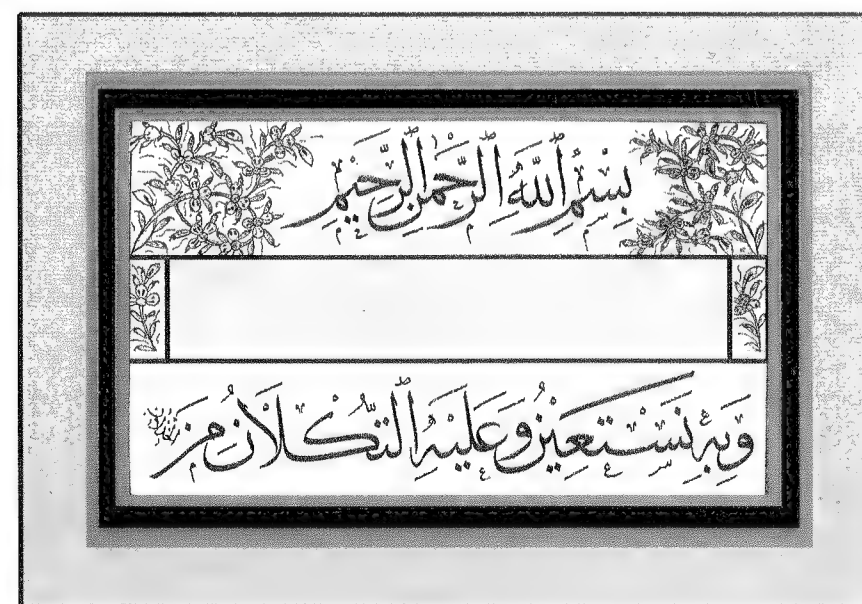 بِسْمِ اللّٰهِ الرَّحْمٰنِ الرَّحِيمِ
وَبِهِ نَسْتَعِينُ وَعَلَيْهِ التُّكْلَانُ مِنْ